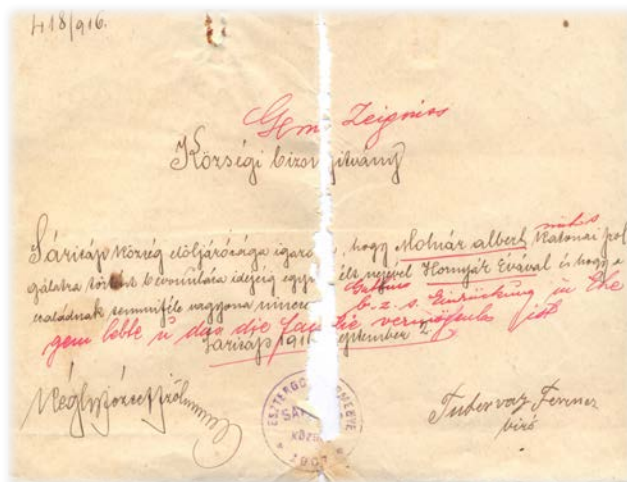 418/916.
Gem Zeigniss
Községi bizon ítvány
Sárisáp község elöljárósága igazo , hogy Molnár Albert katonai szol
gálatra történt bevonulása idejéig együ élt nejével Hornyák Évával és hogy a
Gattin
családnak semmiféle vagyona nincs
b. z. s. Einrückung in Ehe
gem lebte u das die fam lie vermögenlos ist
Sárisáp 191 eptember 2.
ESZTERGO RMEGYE
SÁ
KÖZS
1907
Tubervaz Ferencz
biró